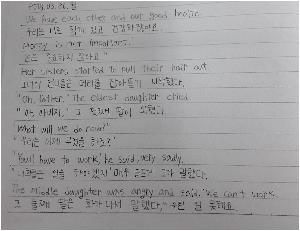 We have each other and our good health.
우리는 서로 함께 있고 건강하잖아요.
Money is not important."
돈은 중요하지 않아요."
Her sisters started to pull their hair out.
그녀의 언니들은 머리를 잡아뜯기 시작했다.
"Oh, father," The eldest daughter cried.
"아, 아버지," 그 첫째 딸이 외쳤다.
What will we do now?"
"우리는 이제 무엇을 하죠?"
"You'll have to work," he said, very sadly.
"너희들은 일을 해야겠지" 매우 슬프게 그가 말했다.
The middle daughter was angry and said, "We can't work.
그 둘째 딸은 화가 나서 말했다, "우린 일 못해요.